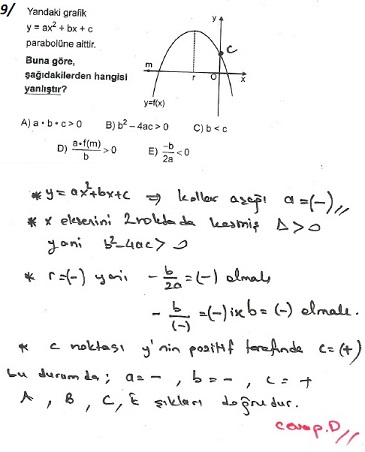 9/ Yandaki grafik
y = ax² + bx + c
parabolüne aittir.
Buna göre,
şağıdakilerden hangisi
yanlıştır?
y
c
m
r
O
x
y=f(x)
A) a • b • c > 0 B) b² – 4ac > 0 C) b < c
D) a•f(m)/b > 0 E) –b/2a < 0
* y = ax²+bx+c ⇒ kollar aşağı a = (-) //
* x eksenini 2 noktada kesmiş Δ > 0
yani b²-4ac > 0
* r = (-) yani - b/2a = (-) olmalı
- b/(-) = (-) ise b = (-) olmalı.
* c noktası y'nin pozitif tarafında c = (+)
bu durumda; a = - , b = - , c = +
A , B , C, E şıkları doğrudur.
cevap.D //